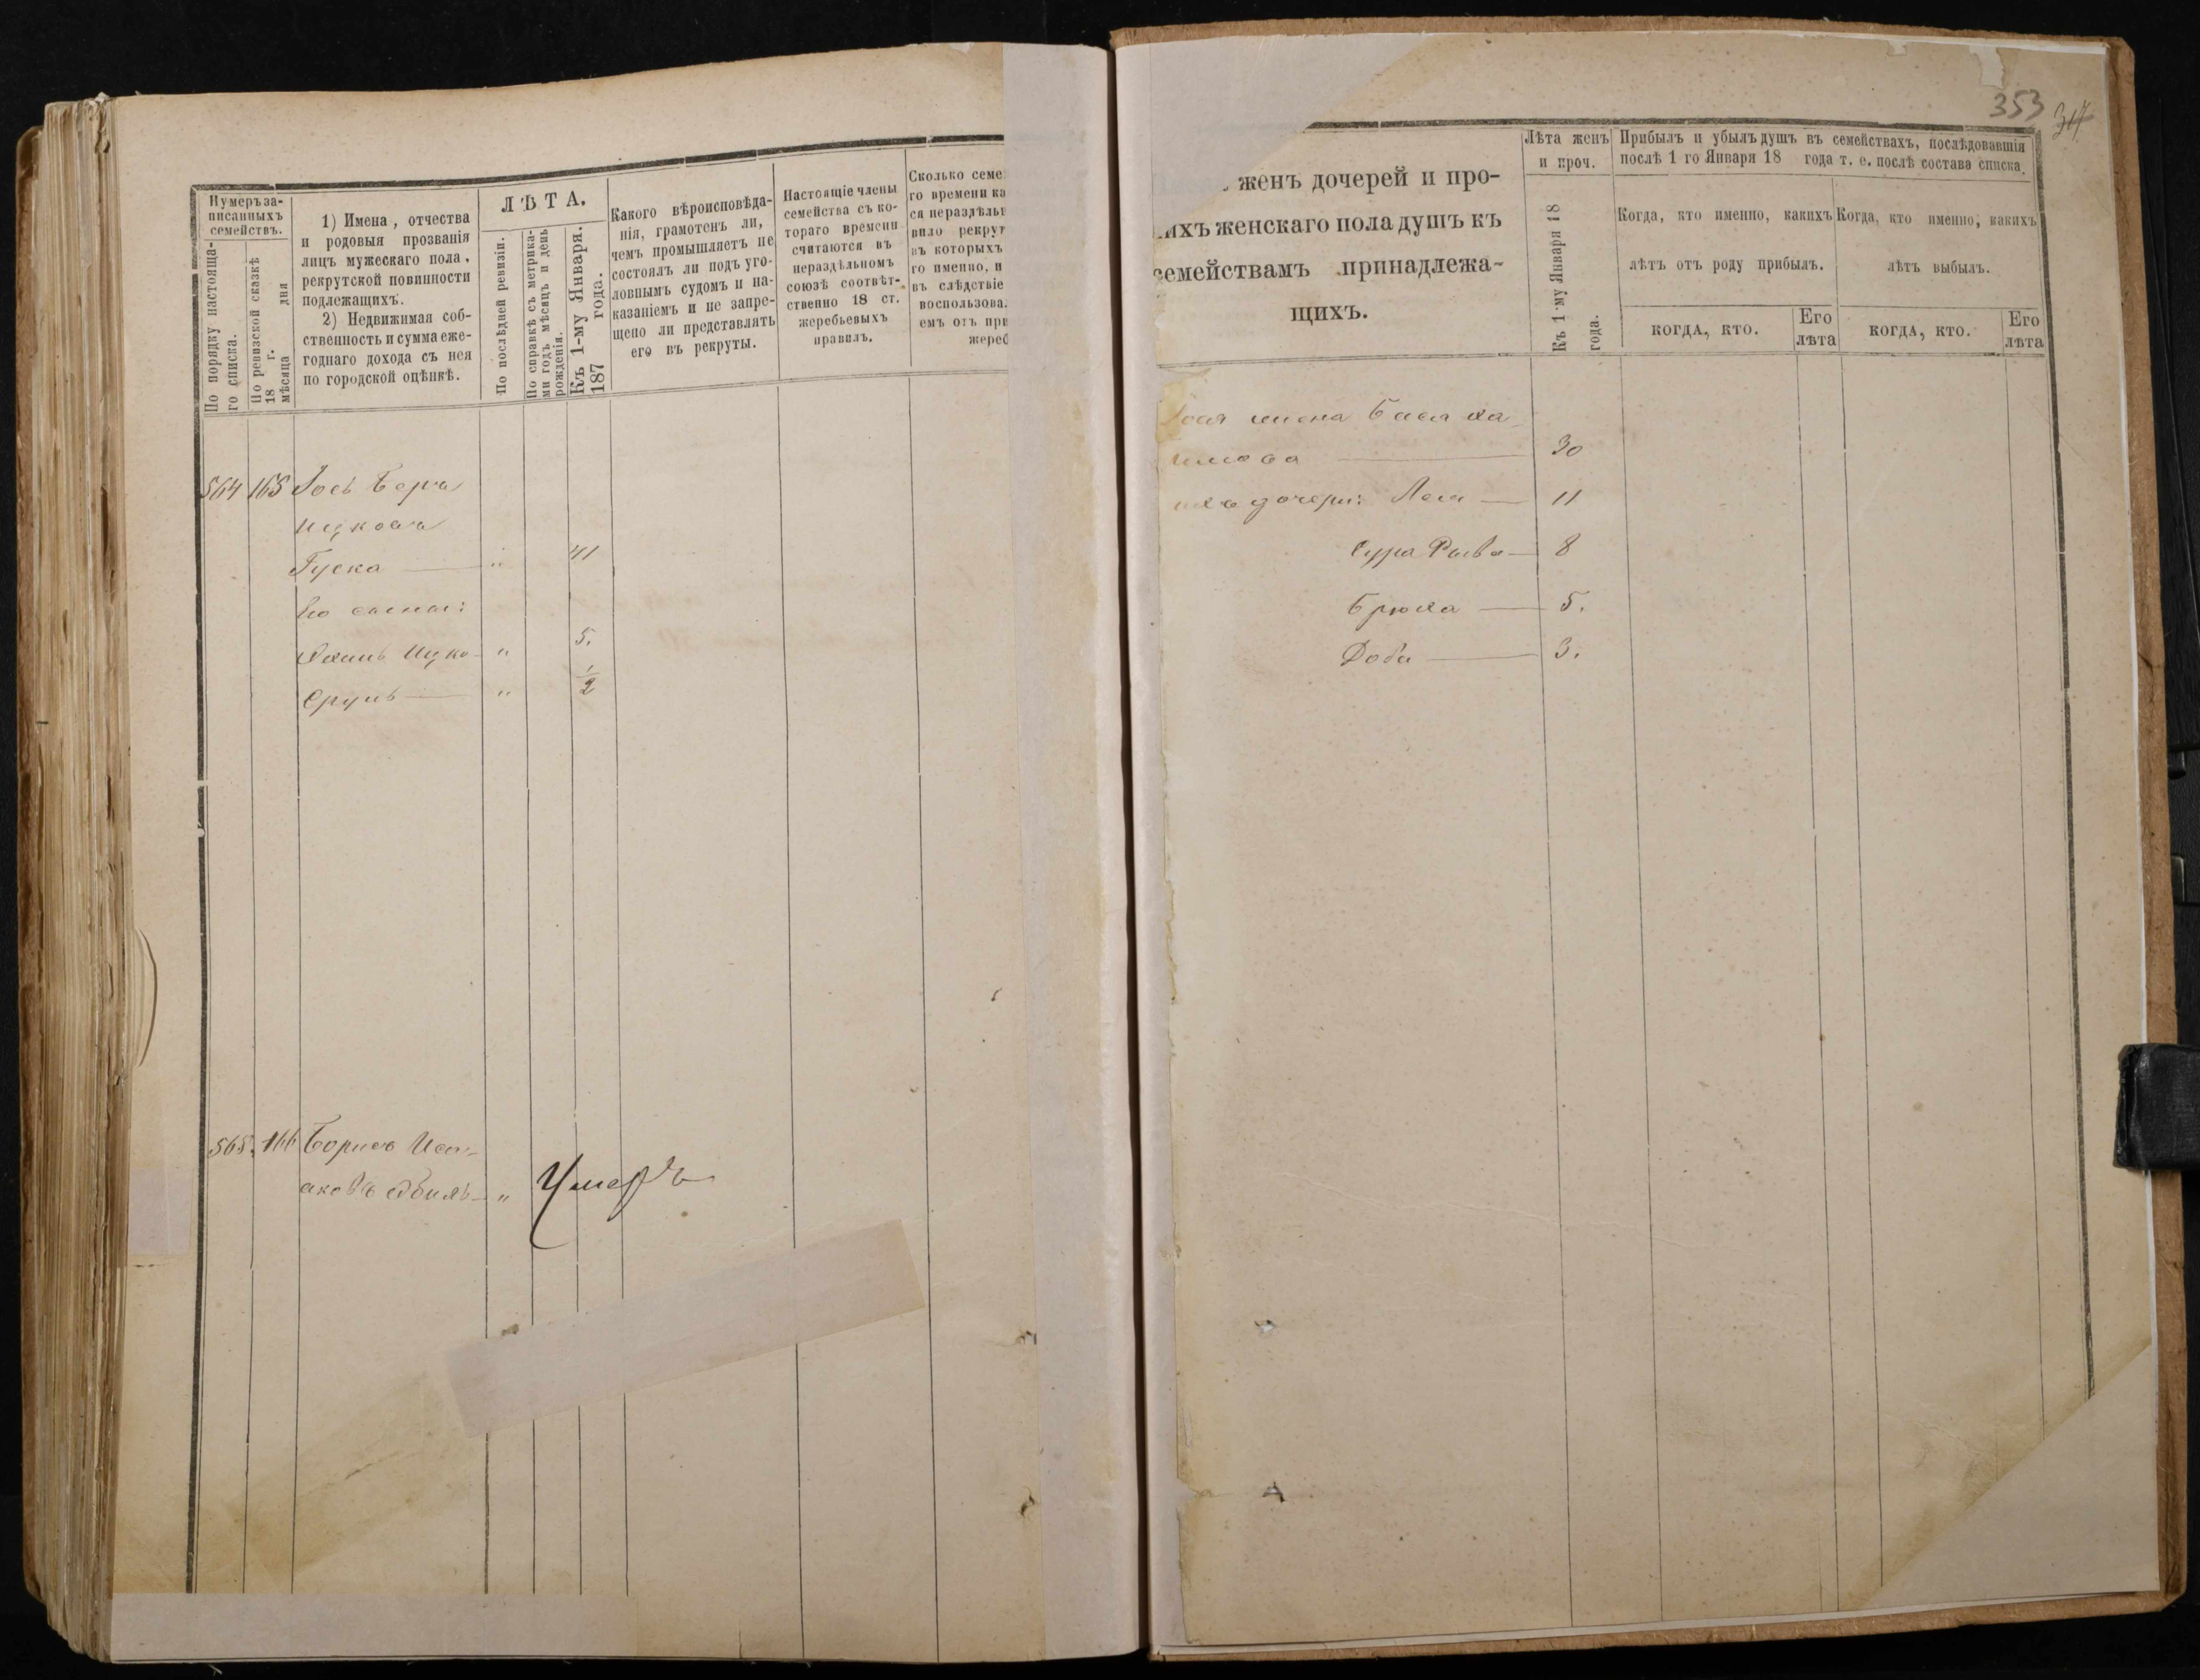 353
317
Нумеръ за-
писанныхъ
семействъ.
По порядку настояща-
го списка.
По ревизской сказкѣ
18 г. дня
мѣсяца
1) Имена, отчества
и родовыя прозванія
лицъ мужескаго пола,
рекрутской повинности
подлежащихъ.
2) Недвижимая соб-
ственность и сумма еже-
годнаго дохода съ нея
по городской оцѣнкѣ.
ЛѢТА.
По послѣдней ревизіи.
По справкѣ съ метрика-
ми годъ мѣсяцъ и день
рожденія.
Къ 1-му Января.
187 года.
Какого вѣроисповѣда-
нія, грамотенъ ли,
чемъ промышляетъ не
состоялъ ли подъ уго-
ловнымъ судомъ и на-
казаніемъ и не запре-
щено ли представлять
его въ рекруты.
Настоящіе члены
семейства съ ко-
тораго времени
считаются въ
нераздѣльномъ
союзѣ соотвѣт-
ственно 18 ст.
жеребьевыхъ
правилъ.
Сколько семе
го времени ка
ся нераздѣльн
вило рекрут
въ которыхъ
го именно, и
въ слѣдствіе
воспользова
емъ отъ при
жереб
564 165 Іось Беръ
Ицковъ
Гуска " 41
Его сыновья:
Хаимъ Ицко " 5.
Сруль " 1/2
565. 166 Борисъ Иса-
аковъ " Умеръ
женъ дочерей и про-
ихъ женскаго пола душъ къ
семействамъ принадлежа-
щихъ.
Лѣта женъ
и проч.
Къ 1-му Января 18
года.
Прибылъ и убылъ душъ въ семействахъ, послѣдовавшія
послѣ 1 го Января 18 года т. е. послѣ состава списка.
Когда, кто именно, какихъ
лѣтъ отъ роду прибылъ.
когда, кто.
Его
лѣта
Когда, кто именно, какихъ
лѣтъ выбылъ.
когда, кто.
Его
лѣта
жена Бася Ха
имова 30
ихъ дочери: Леа 11
Сура Рыва 8
Брюха 5.
Доба 3.